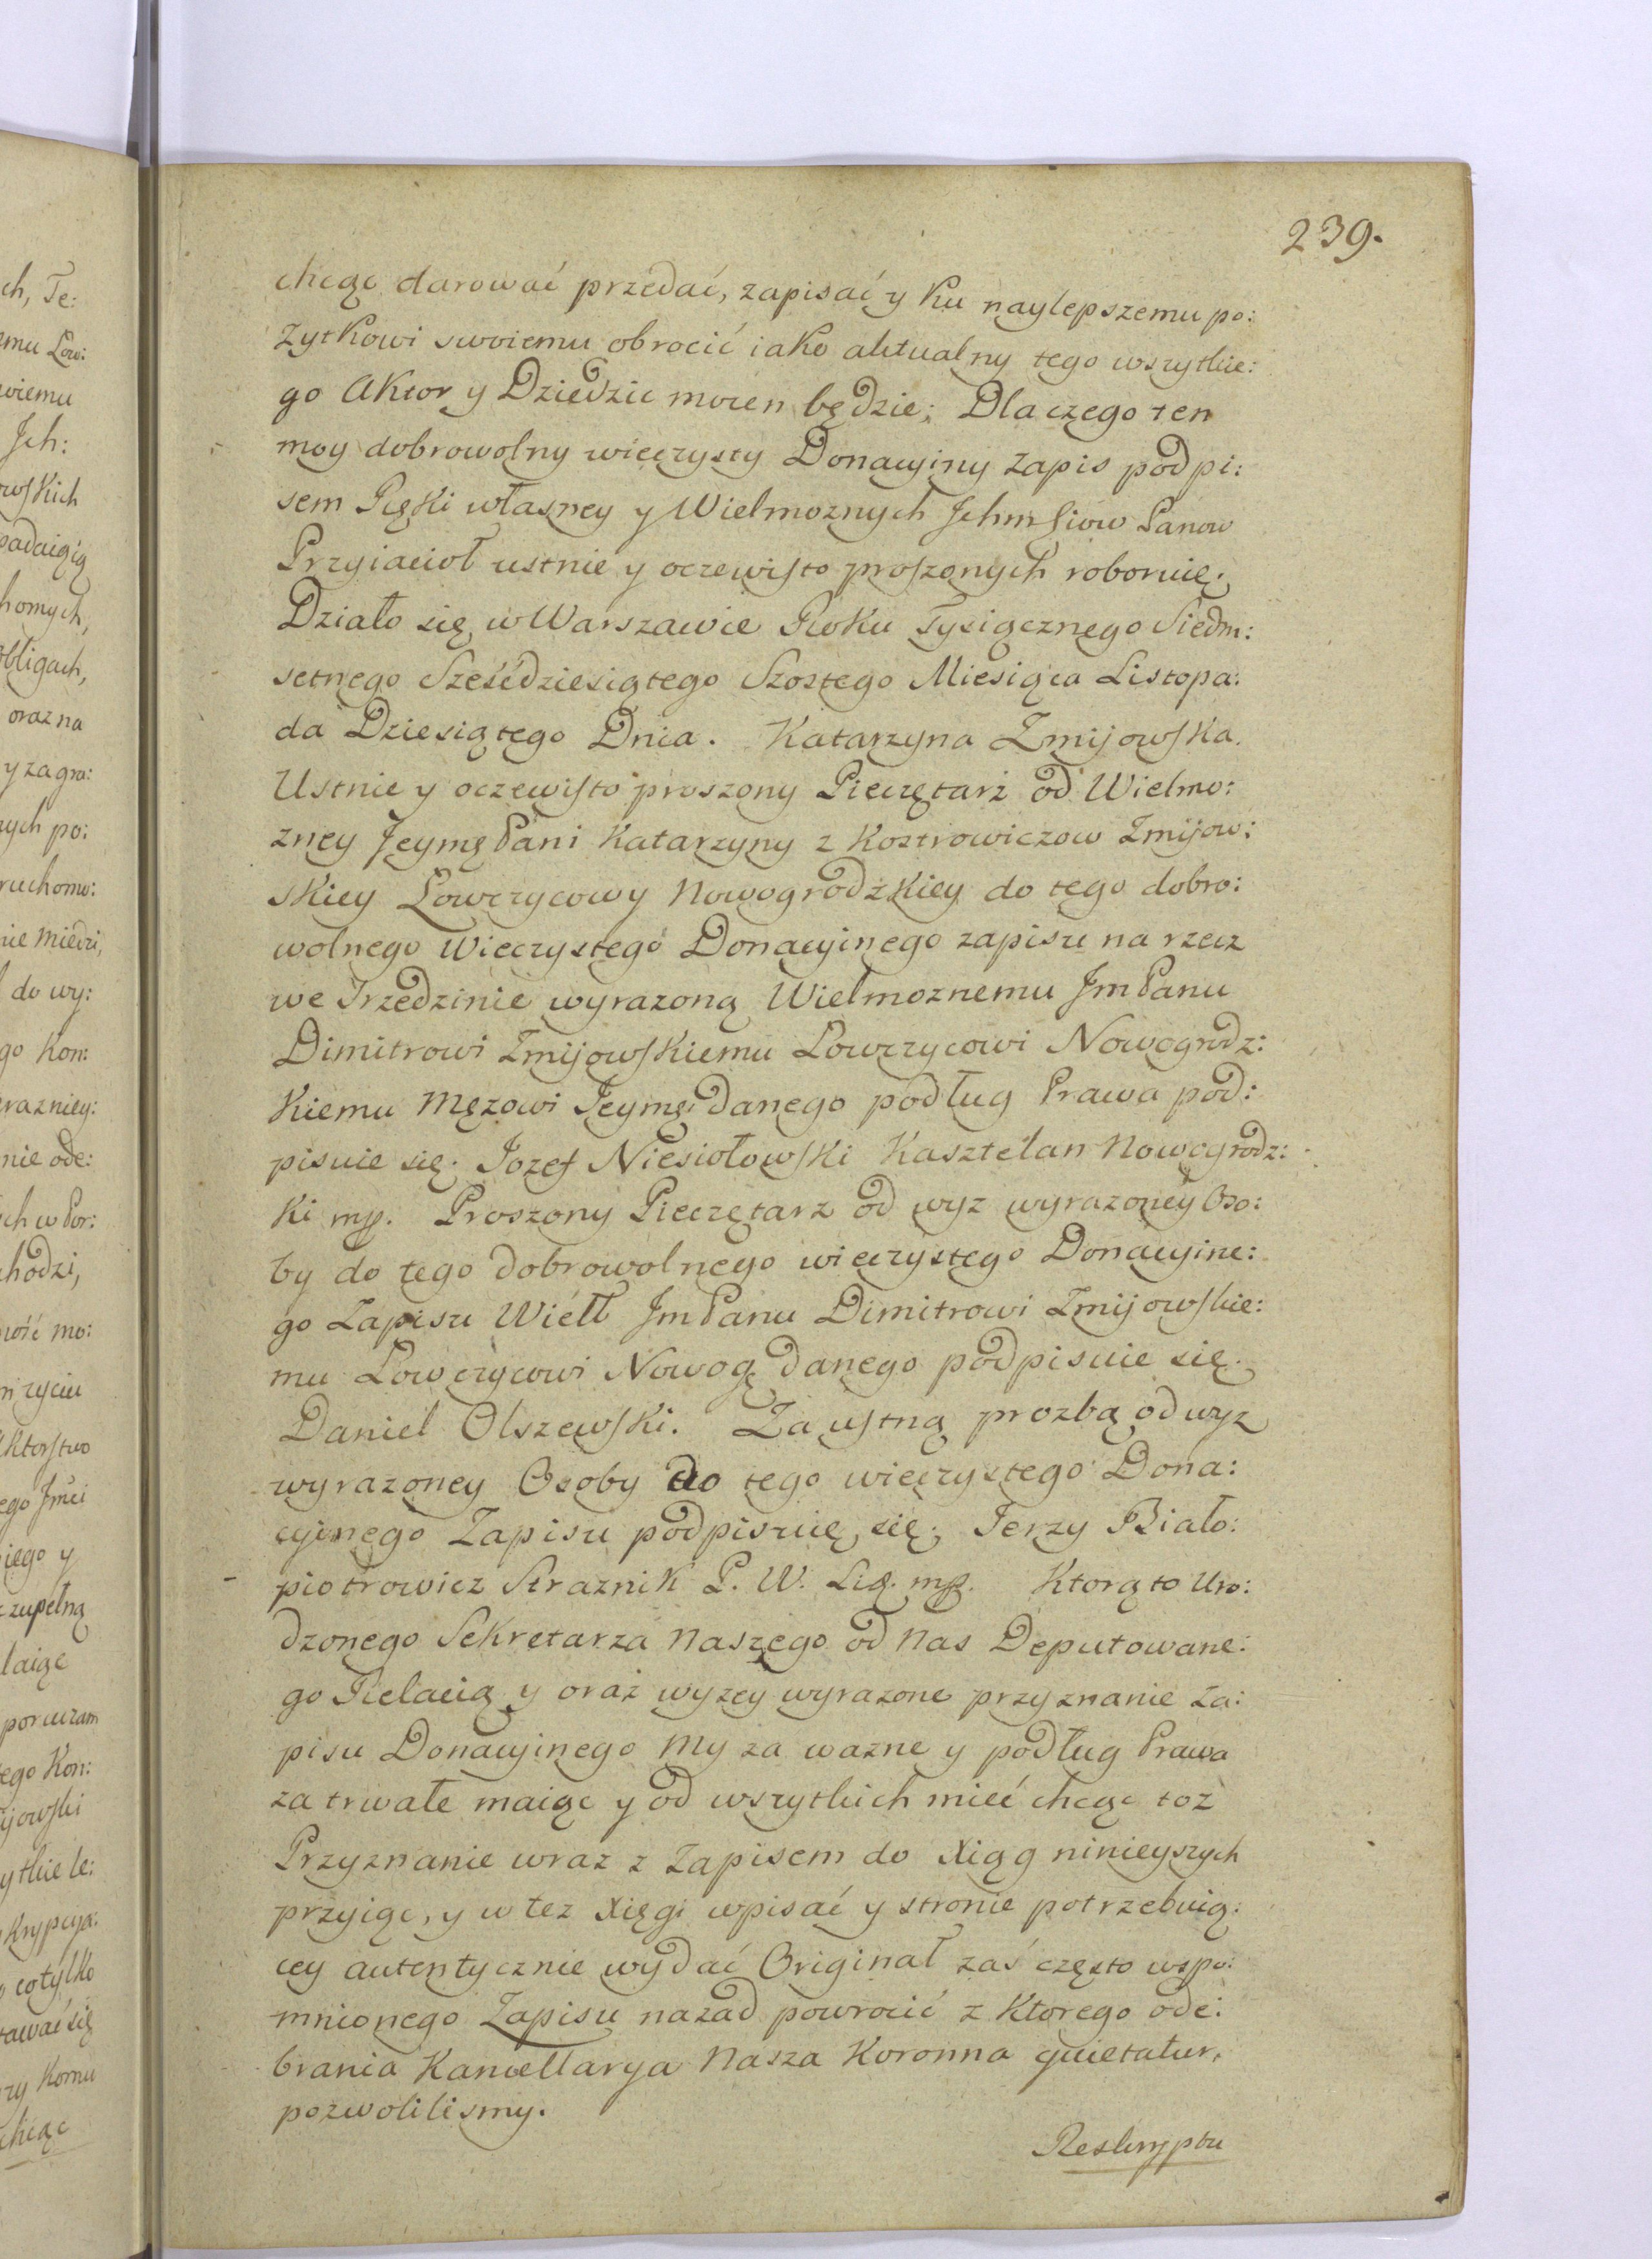 239.
chcąc darować przedać, zapisać y Ku naylepszemu po:
zytkowi swoiemu obrocić iako aktualny tego wszytkie:
go Aktor y Dziedzic mocen będzie; Dlaczego ten
moy dobrowolny wieczysty Donacyiny Zapis podpi:
sem Ręki własney y Wielmoznych Ichmsiow Panow
Przyiacioł ustnie y oczewisto proszonych roboruię.
Działo się w Warszawie Roku Tysiącznego Siedm:
setnego Sześćdziesiątego Szostego Miesiąca Listopa:
da Dziesiątego Dnia. Katarzyna Zmijowska.
Ustnie y oczewisto proszony Pieczętarz od Wielmo:
zney Jeymę Pani Katarzyny z Kostrowiczow Zmijow:
skiey Łowczycowy Nowogrodzkiey do tego dobro:
wolnego Wieczystego Donacyinego zapisu na rzecz
we Srzedzinie wyrazoną Wielmoznemu Jm Panu
Dimitrowi Zmijowskiemu Łowczycowi Nowogrodz:
Kiemu Męzowi Jeymę danego podług Prawa pod:
pisuie się. Jozef Niesiołowski Kasztelan Nowogrodz:
Ki mp. Proszony Pieczętarz od wyz wyrazoney Oso:
by do tego dobrowolnego wieczystego Donacyine:
go Zapisu Wiełł Jm Panu Dimitrowi Zmijowskie:
mu Łowczycowi Nowog danego podpisuie się.
Daniel Olszewski. Za ustną prozbą od wyz
wyrazoney Osoby do tego wieczystego Dona:
cyinego Zapisu podpisuię się. Jerzy Biało:
piotrowicz Straznik P. W. Lig. mp. Ktorą to Uro:
dzonego Sekretarza Naszego od Nas Deputowane:
go Relacią y oraz wyzey wyrazone przyznanie Za:
pisu Donacyinego My za wazne y podług Prawa
za trwałe maiąc y od wszytkich mieć chcąc toz
Przyznanie wraz z Zapisem do Xiąg ninieyszych
przyiąc, y w tez Xięgi wpisać y stronie potrzebuią:
cey autentycznie wydać Originał zaś często wspo:
mnionego Zapisu nazad powrocić z Ktorego ode:
brania Kancellarya Nasza Koronna quietatur,
pozwolilismy.
Reskryptu